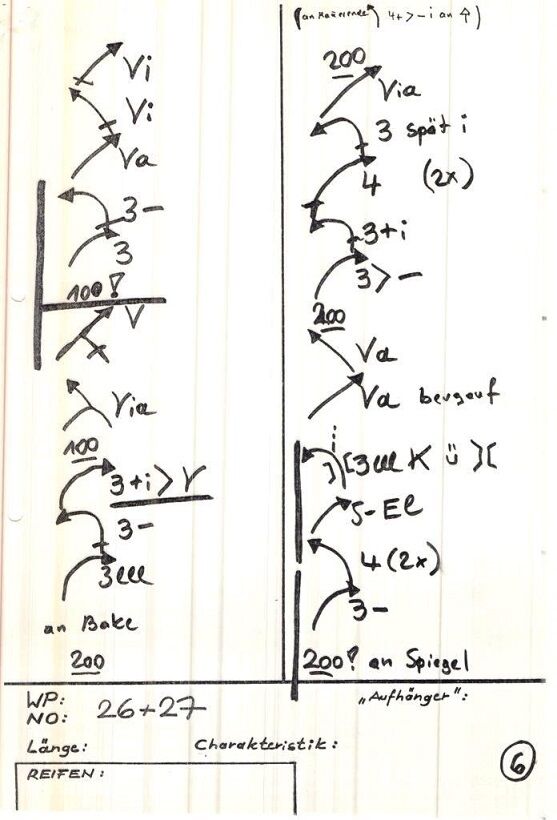 Vi
Vi
Va
3-
3
100!
V
Via
100
3+i > V
3-
3lll
an Bake
200
4+ > - i an
200
Via
3 spät i
4 (2x)
3+i
3 > -
200
Va
Va bergauf
][3lll K ü ][
5-El
4 (2x)
3-
200! an Spiegel
WP:
NO: 26+27
"Aufhänger":
Länge: Charakteristik:
6
REIFEN: